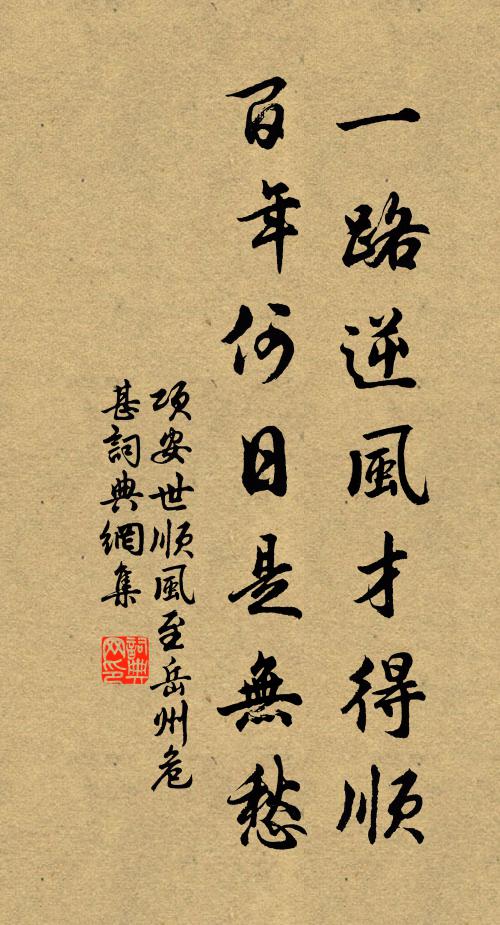 一路逆風才得順
百年何日是無愁
項安世順風至岳州危
甚詞典網集
詞典网印